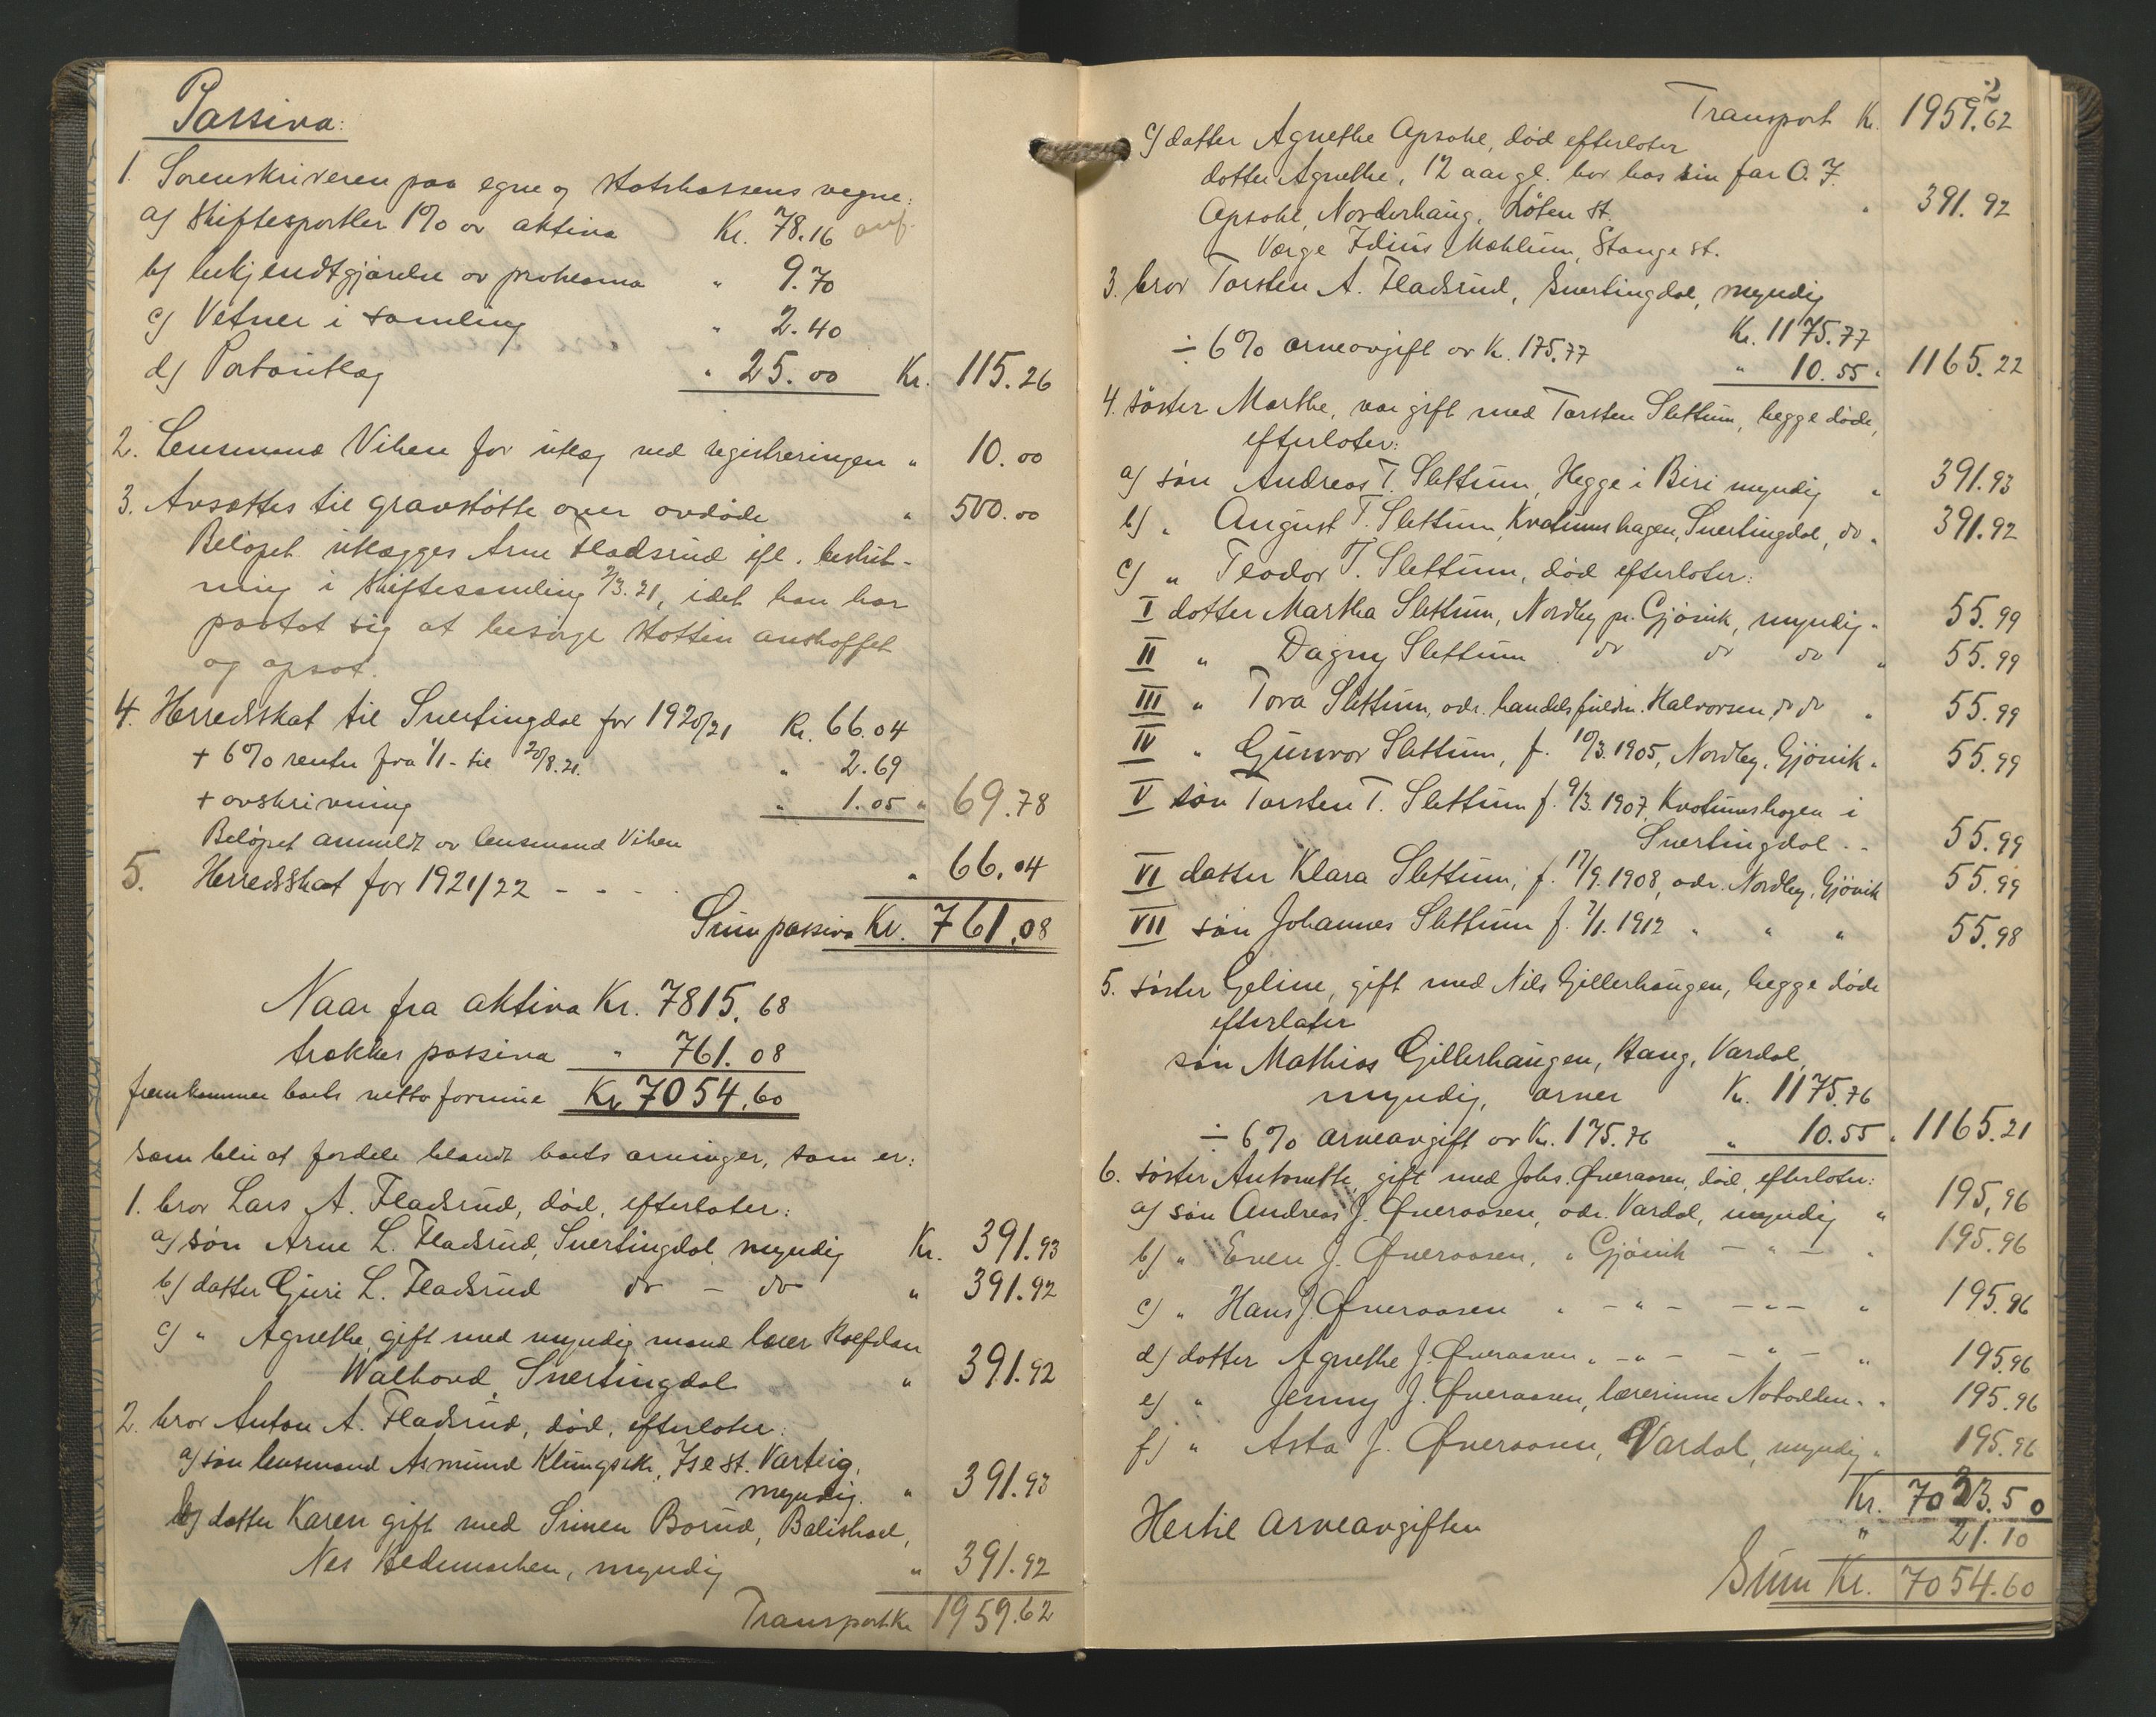 Passiva:
1. Sorenskriveren paa egne og statskassens vegne:
a) Skiftesportler 1% av aktiva Kr. 78.16
b) bekjendtgjørelse av proklama " 9.70
c) Vetner i samling " 2.40
d) Portoutlæg " 25.00 Kr. 115.26
2. Lensmand Viken for utlæg ved registreringen " 10.00
3. Avsættes til gravstøtte over avdøde " 500.00
Beløpet utlægges Arne Fladsrud ifl. beslut-
ning i skiftesamling 2/3.21, idet han har
paatat sig at besørge støtten anskaffet
og opsat.
4. Herredskat til Snertingdal for 1920/21 Kr. 66.04
+ 6% renter fra 1/1 - til 20/8.21. " 2.69
+ avskrivning " 1.05 " 69.78
Beløpet anmeldt av lensmand Viken
5. Herredskat for 1921/22 - - - " 66.04
Sum passiva Kr. 761.08
Naar fra aktiva Kr. 7815.68
trækkes passiva " 761.08
fremkommer boets netto formue Kr. 7054.60
som blir at fordele blandt boets arvinger, som er:
1. bror Lars A. Fladsrud, død, efterlater:
a) søn Arne L. Fladsrud, Snertingdal, myndig Kr. 391.93
b) datter Guri L. Fladsrud do - do " 391.92
c) " Agnethe, gift med myndig mand lærer Halfdan
Walhovd, Snertingdal " 391.92
2. bror Anton A. Fladsrud, død, efterlater:
a) søn lensmand Asmund Ise st. Varteig,
myndig. " 391.93
b) datter Karen gift med Simen Borud, Balishoel,
Nes Hedemarken, myndig " 391.92
Transport Kr 1959.62
2
Transport Kr. 1959.62
c) datter Agnethe Opsahl, død efterlater
datter Agnethe, 12 aar gl. bor hos sin far O. J.
Opsahl, Norderhaug, Løten st. " 391.92
Værge Julius Mæhlum, Stange st.
3. bror Torsten A. Fladsrud, Snertingdal, myndig
Kr. 1175.77
÷ 6% arveavgift av Kr. 175.77 " 10.55 " 1165.22
4. søster Marthe, var gift med Torsten Slettum, begge døde,
efterlater:
a) søn Andreas T. Slettum, Hegge i Biri myndig " 391.93
b) " August T. Slettum, Kvatumshagen, Snertingdal, do " 391.92
c) " Teodor T. Slettum, død efterlater:
I datter Martha Slettum, Nordby pr. Gjøvik, myndig " 55.99
II " Dagny Slettum do do do " 55.99
III " Tora Slettum, adr. handelsfuldm. Halvorsen, do do " 55.99
IV " Gunvor Slettum, f. 10/3.1905, Nordby, Gjøvik " 55.99
V søn Torsten T. Slettum f. 9/3.1907, Kvatumshagen i
Snertingdal - - 55.99
VI datter Klara Slettum, f. 17/9.1908, adr. Nordby, Gjøvik 55.99
VII søn Johannes Slettum f. 7/1.1912 " " " 55.98
5. søster Geline, gift med Nils Gillerhaugen, begge døde
efterlater
søn Mathias Gillerhaugen, Haug, Vardal,
myndig, arver Kr. 1175.76
÷ 6% arveavgift av Kr. 175.76 " 10.55 " 1165.21
6. søster Antonette, gift med Johs. Øveraasen, død, efterlater:
a) søn Andreas J. Øveraasen, adr. Vardal, myndig " 195,96
b) " Even J. Øveraasen, " Gjøvik - " - " 195.96
c) " Hans J. Øveraasen " - " - - " - " 195.96
d) datter Agnethe J. Øveraasen " - " - - " - " 195.96
e) " Jenny J. Øveraasen, lærerinne Notodden " " 195.96
f) " Asta J. Øveraasen, Vardal, myndig " 195.96
Kr. 7033.50
Hertil arveavgiften " 21.10
Sum Kr. 7054.60